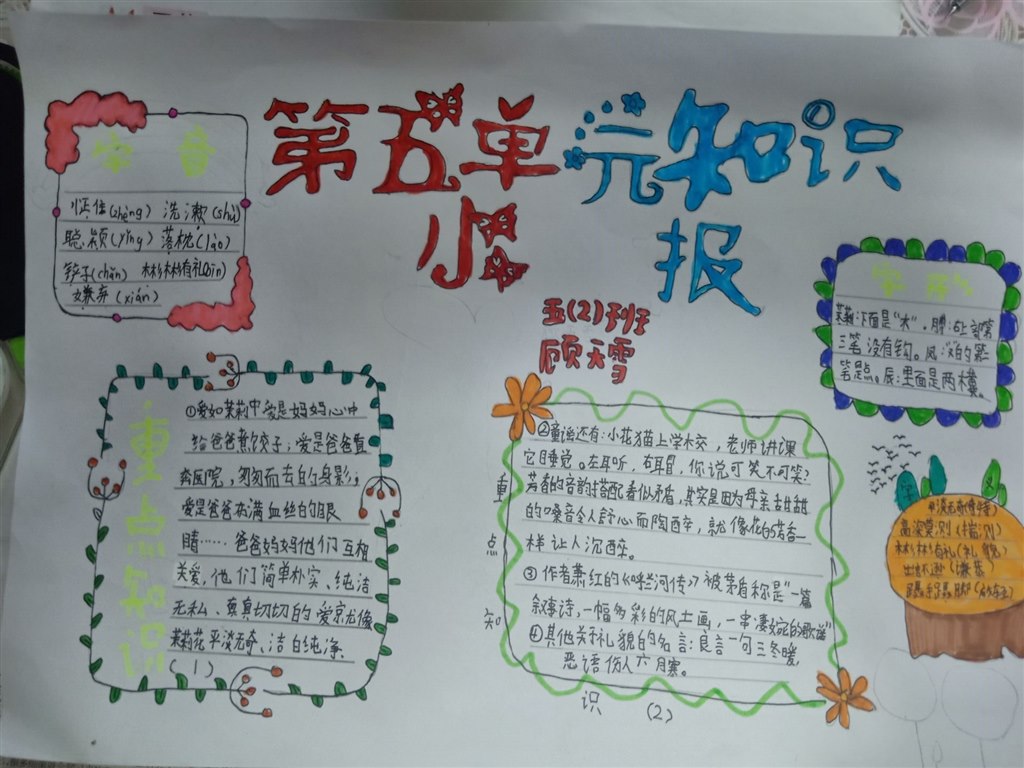 第五单元知识
小报
五(2)班
顾天雪
字音
怔住(zhèng) 洗漱(shù)
聪颖(yǐng) 落枕(lào)
铲子(chǎn) 彬彬有礼(bīn)
嫌弃(xián)
字形
茉莉:下面是"木"。
三笔没有钩。
笔是点。辰:里面是两横。
重点知识
①爱如茉莉中爱是妈妈心中
给爸爸煮饺子;爱是爸爸直
奔医院,匆匆而去的身影;
爱是爸爸布满血丝的眼
睛……爸爸妈妈他们互相
关爱,他们简单朴实、纯洁
无私、真真切切的爱就像
茉莉花平淡无奇、洁白纯净
(1)
重点知识
②童谣还有:小花猫上学校,老师讲课
它睡觉。左耳听,右耳冒,你说可笑不可笑?
芳香的音韵搭配看似矛盾,其实是因为母亲甜甜
的嗓音令人舒心而陶醉,就像花的芳香一
样让人沉醉。
③作者萧红的《呼兰河传》被茅盾称是"一篇
叙事诗,一幅多彩的风土画,一串凄婉的歌谣"
④其他关于礼貌的名言:良言一句三冬暖,
恶语伤人六月寒。
(2)
平淡无奇(特)
彬彬有礼(礼貌)